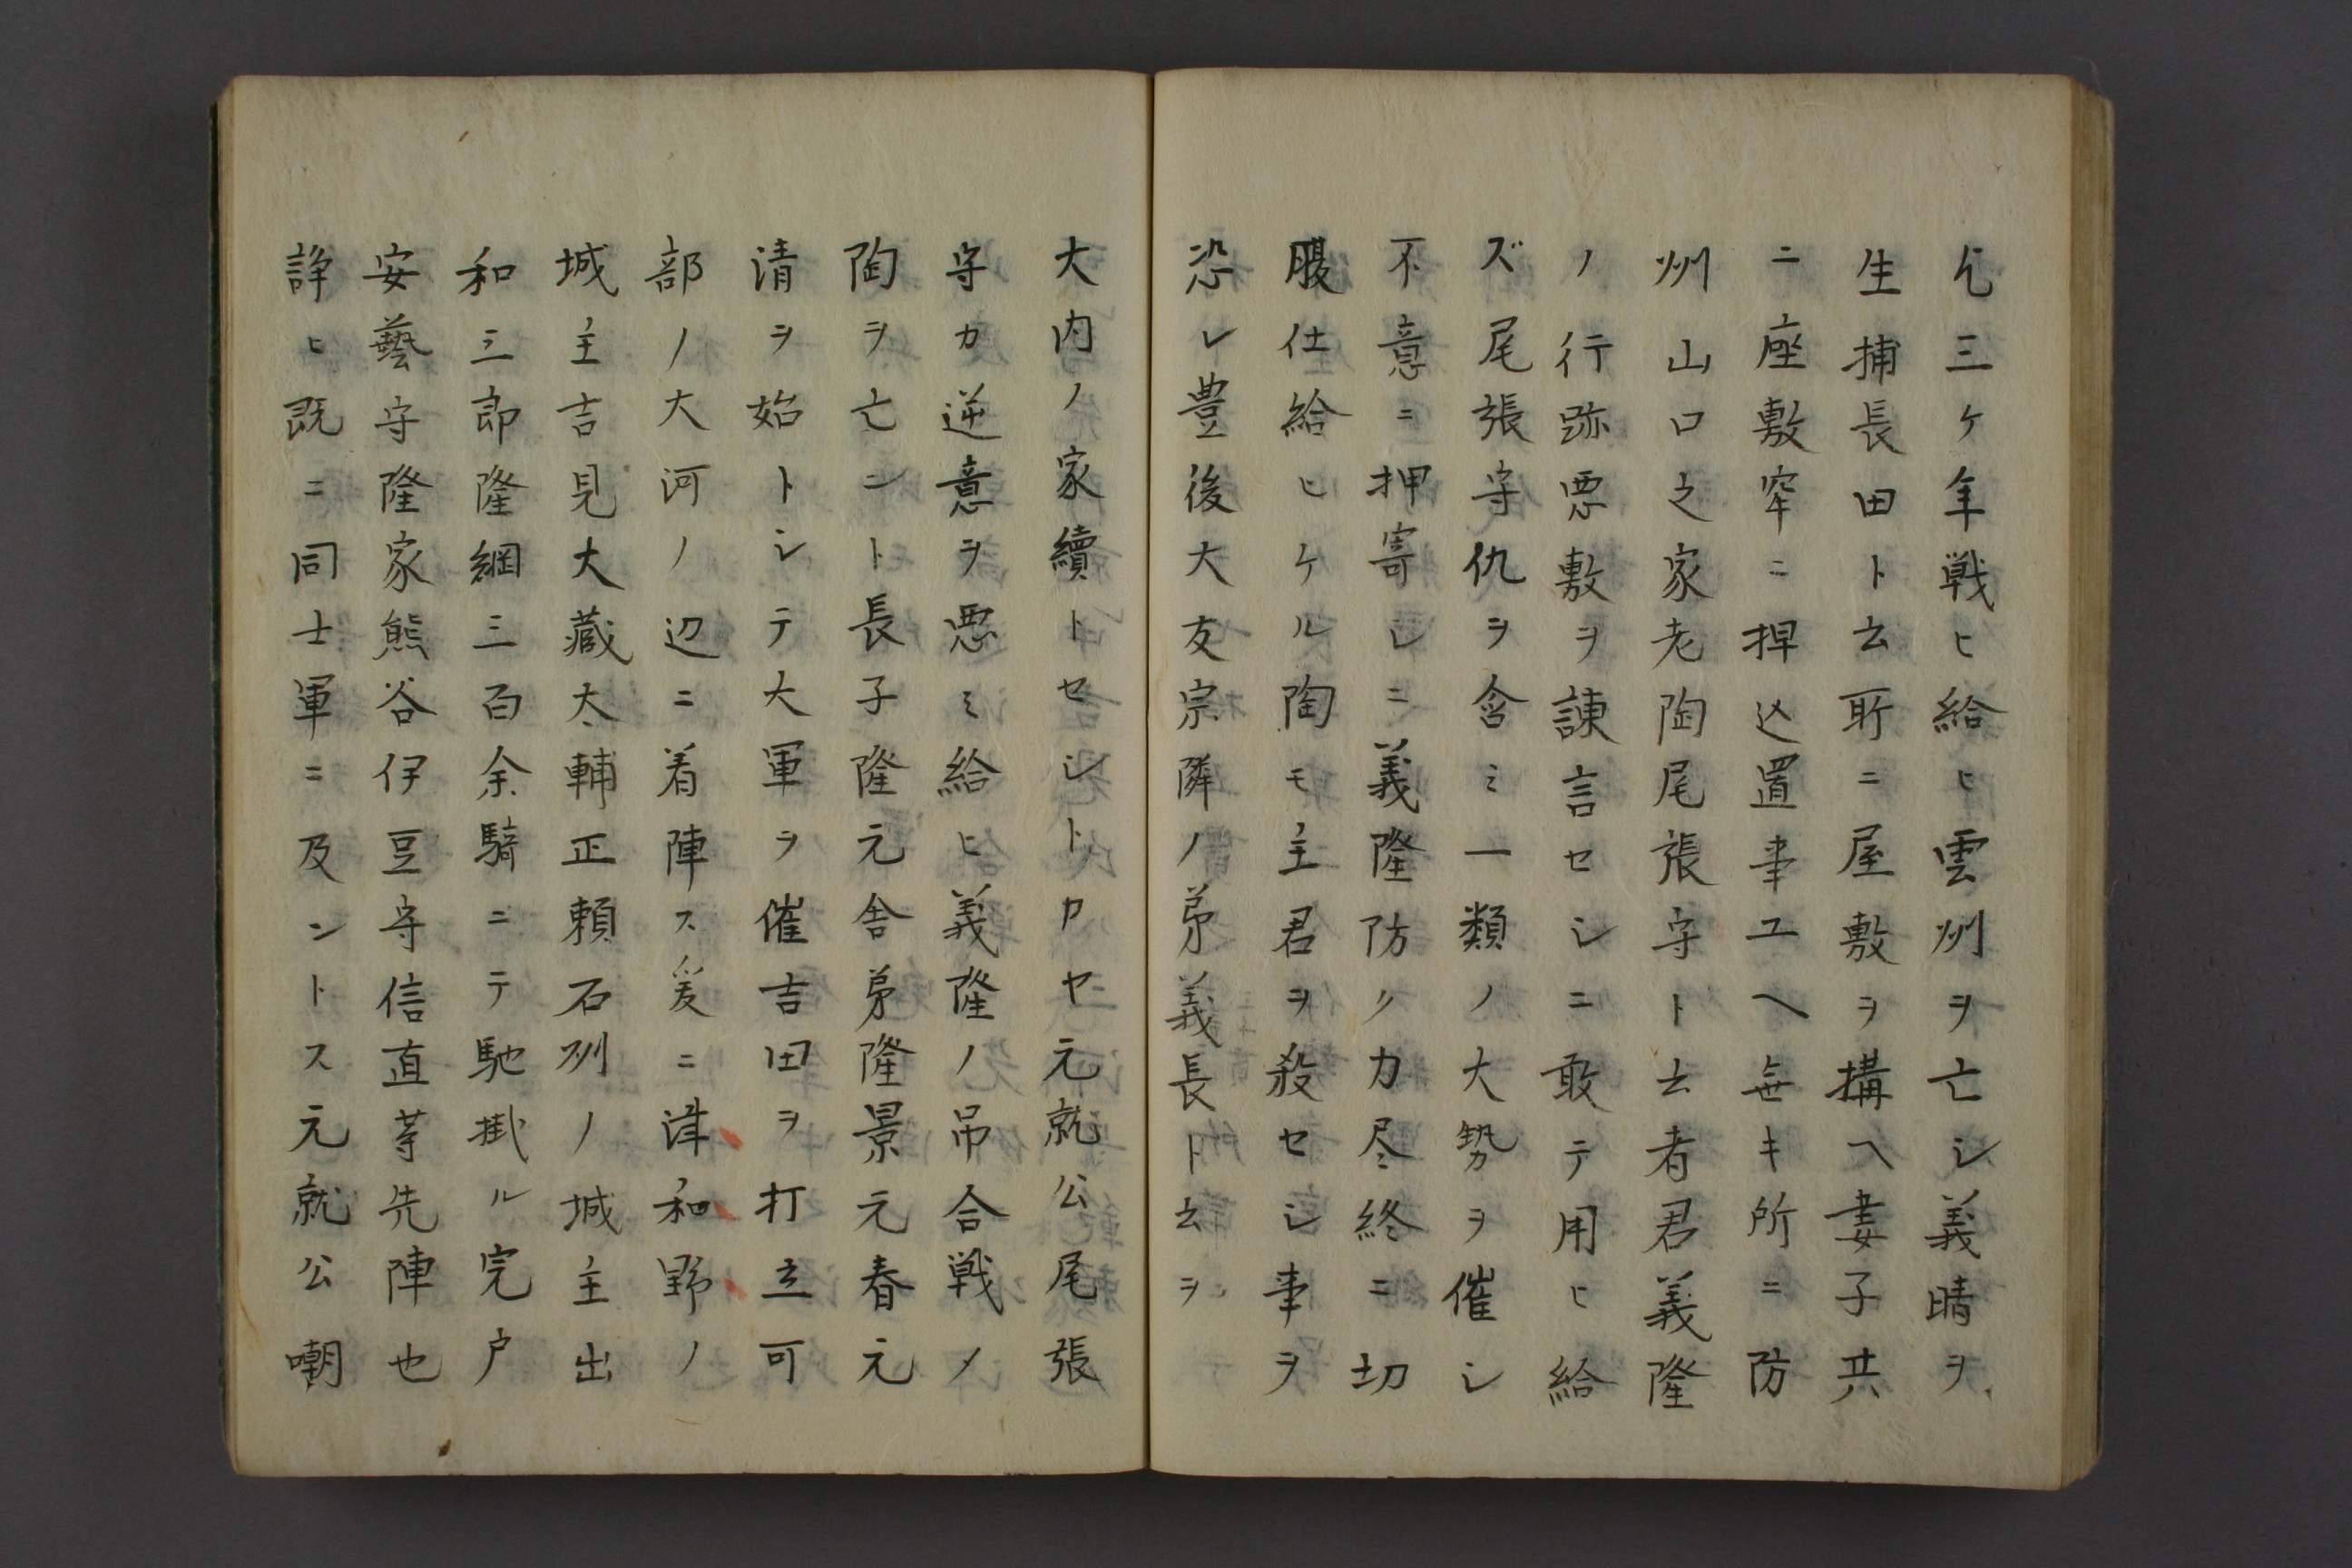 凢三ケ年戦ヒ給ヒ雲州ヲ亡シ義晴ヲ
生捕長田ト云所ニ屋敷ヲ搆ヘ妻子共
ニ座敷牢ニ捍込置事ユヘ無キ所ニ防
州山口之家老陶尾張守ト云者君義隆
ノ行跡悪敷ヲ諫言セシニ敢テ用ヒ給
ズ尾張守仇ヲ含ミ一類ノ大勢ヲ催シ
不意ニ押寄シニ義隆防クカ尽終ニ切
腹仕給ヒケル陶モ主君ヲ殺セシ事ヲ
恐レ豊後大友宗隣ノ弟義長ト云ヲ
大内ノ家續トセシトカヤ元就公尾張
守カ逆意ヲ悪ミ給ヒ義隆ノ吊合戦ノ
陶ヲ亡ント長子隆元舎弟隆景元春元
清ヲ始トシテ大軍ヲ催吉田ヲ打立可
部ノ大河ノ辺ニ着陣ス爰ニ津和野ノ
城主吉見大蔵太輔正頼石州ノ城主出
和三郎隆綱三百余騎ニテ馳掛ル完戸
安藝守隆家熊谷伊豆守信直等先陣也
諍ヒ既ニ同士軍ニ及ントス元就公嘲